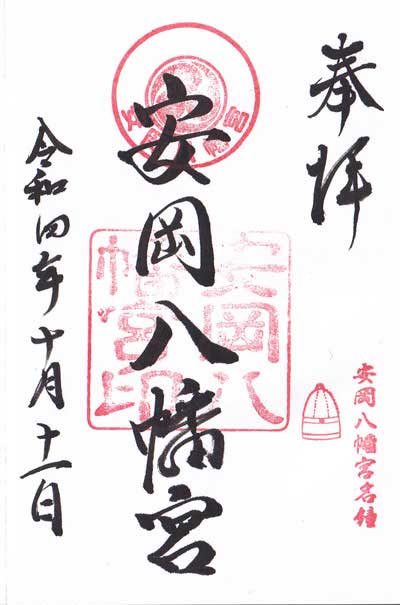 奉拝
安岡八幡宮名鐘
安岡八幡宮
安岡八幡宮印
令和四年十月十一日